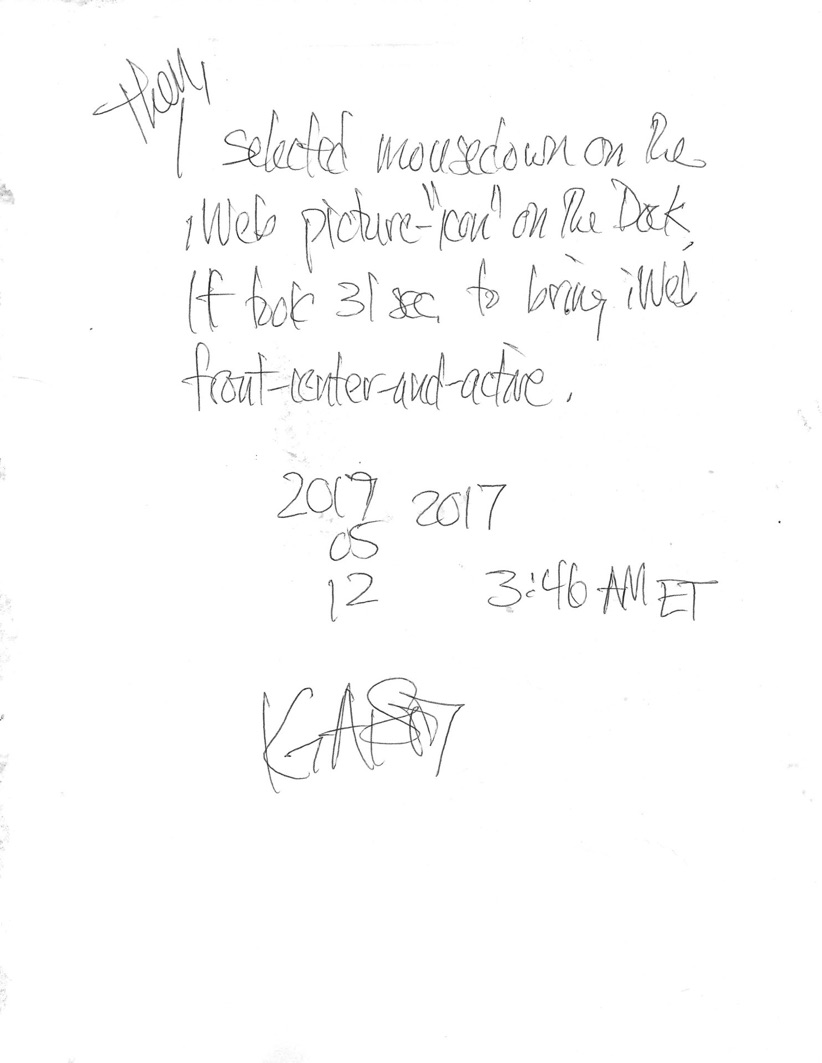 then,
I selected mousedown on the
iWeb picture-"icon" on the Dock.
It took 31 sec. to bring iWeb
front-center-and-active.
2019 2017
05
12 3:46 AM ET